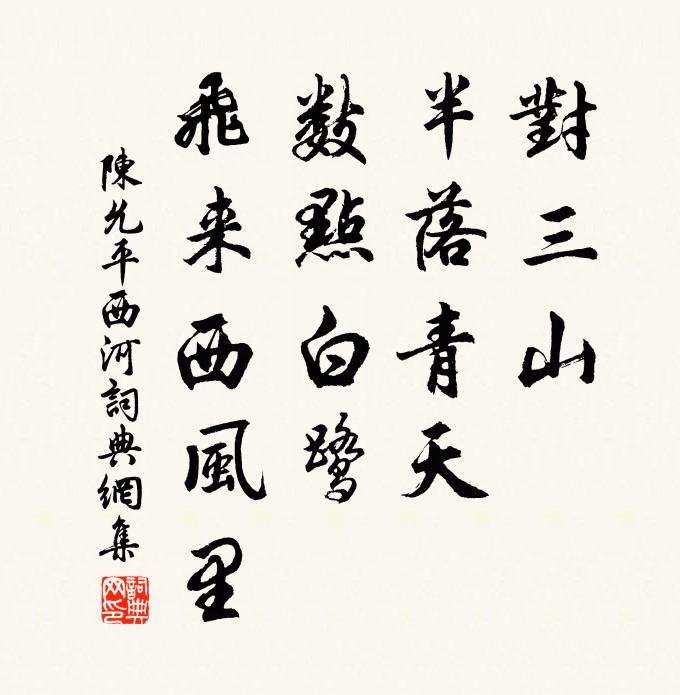 對三山
半落青天
數點白鷺
飛来西風里
陳允平西河詞典網集
詞典网印